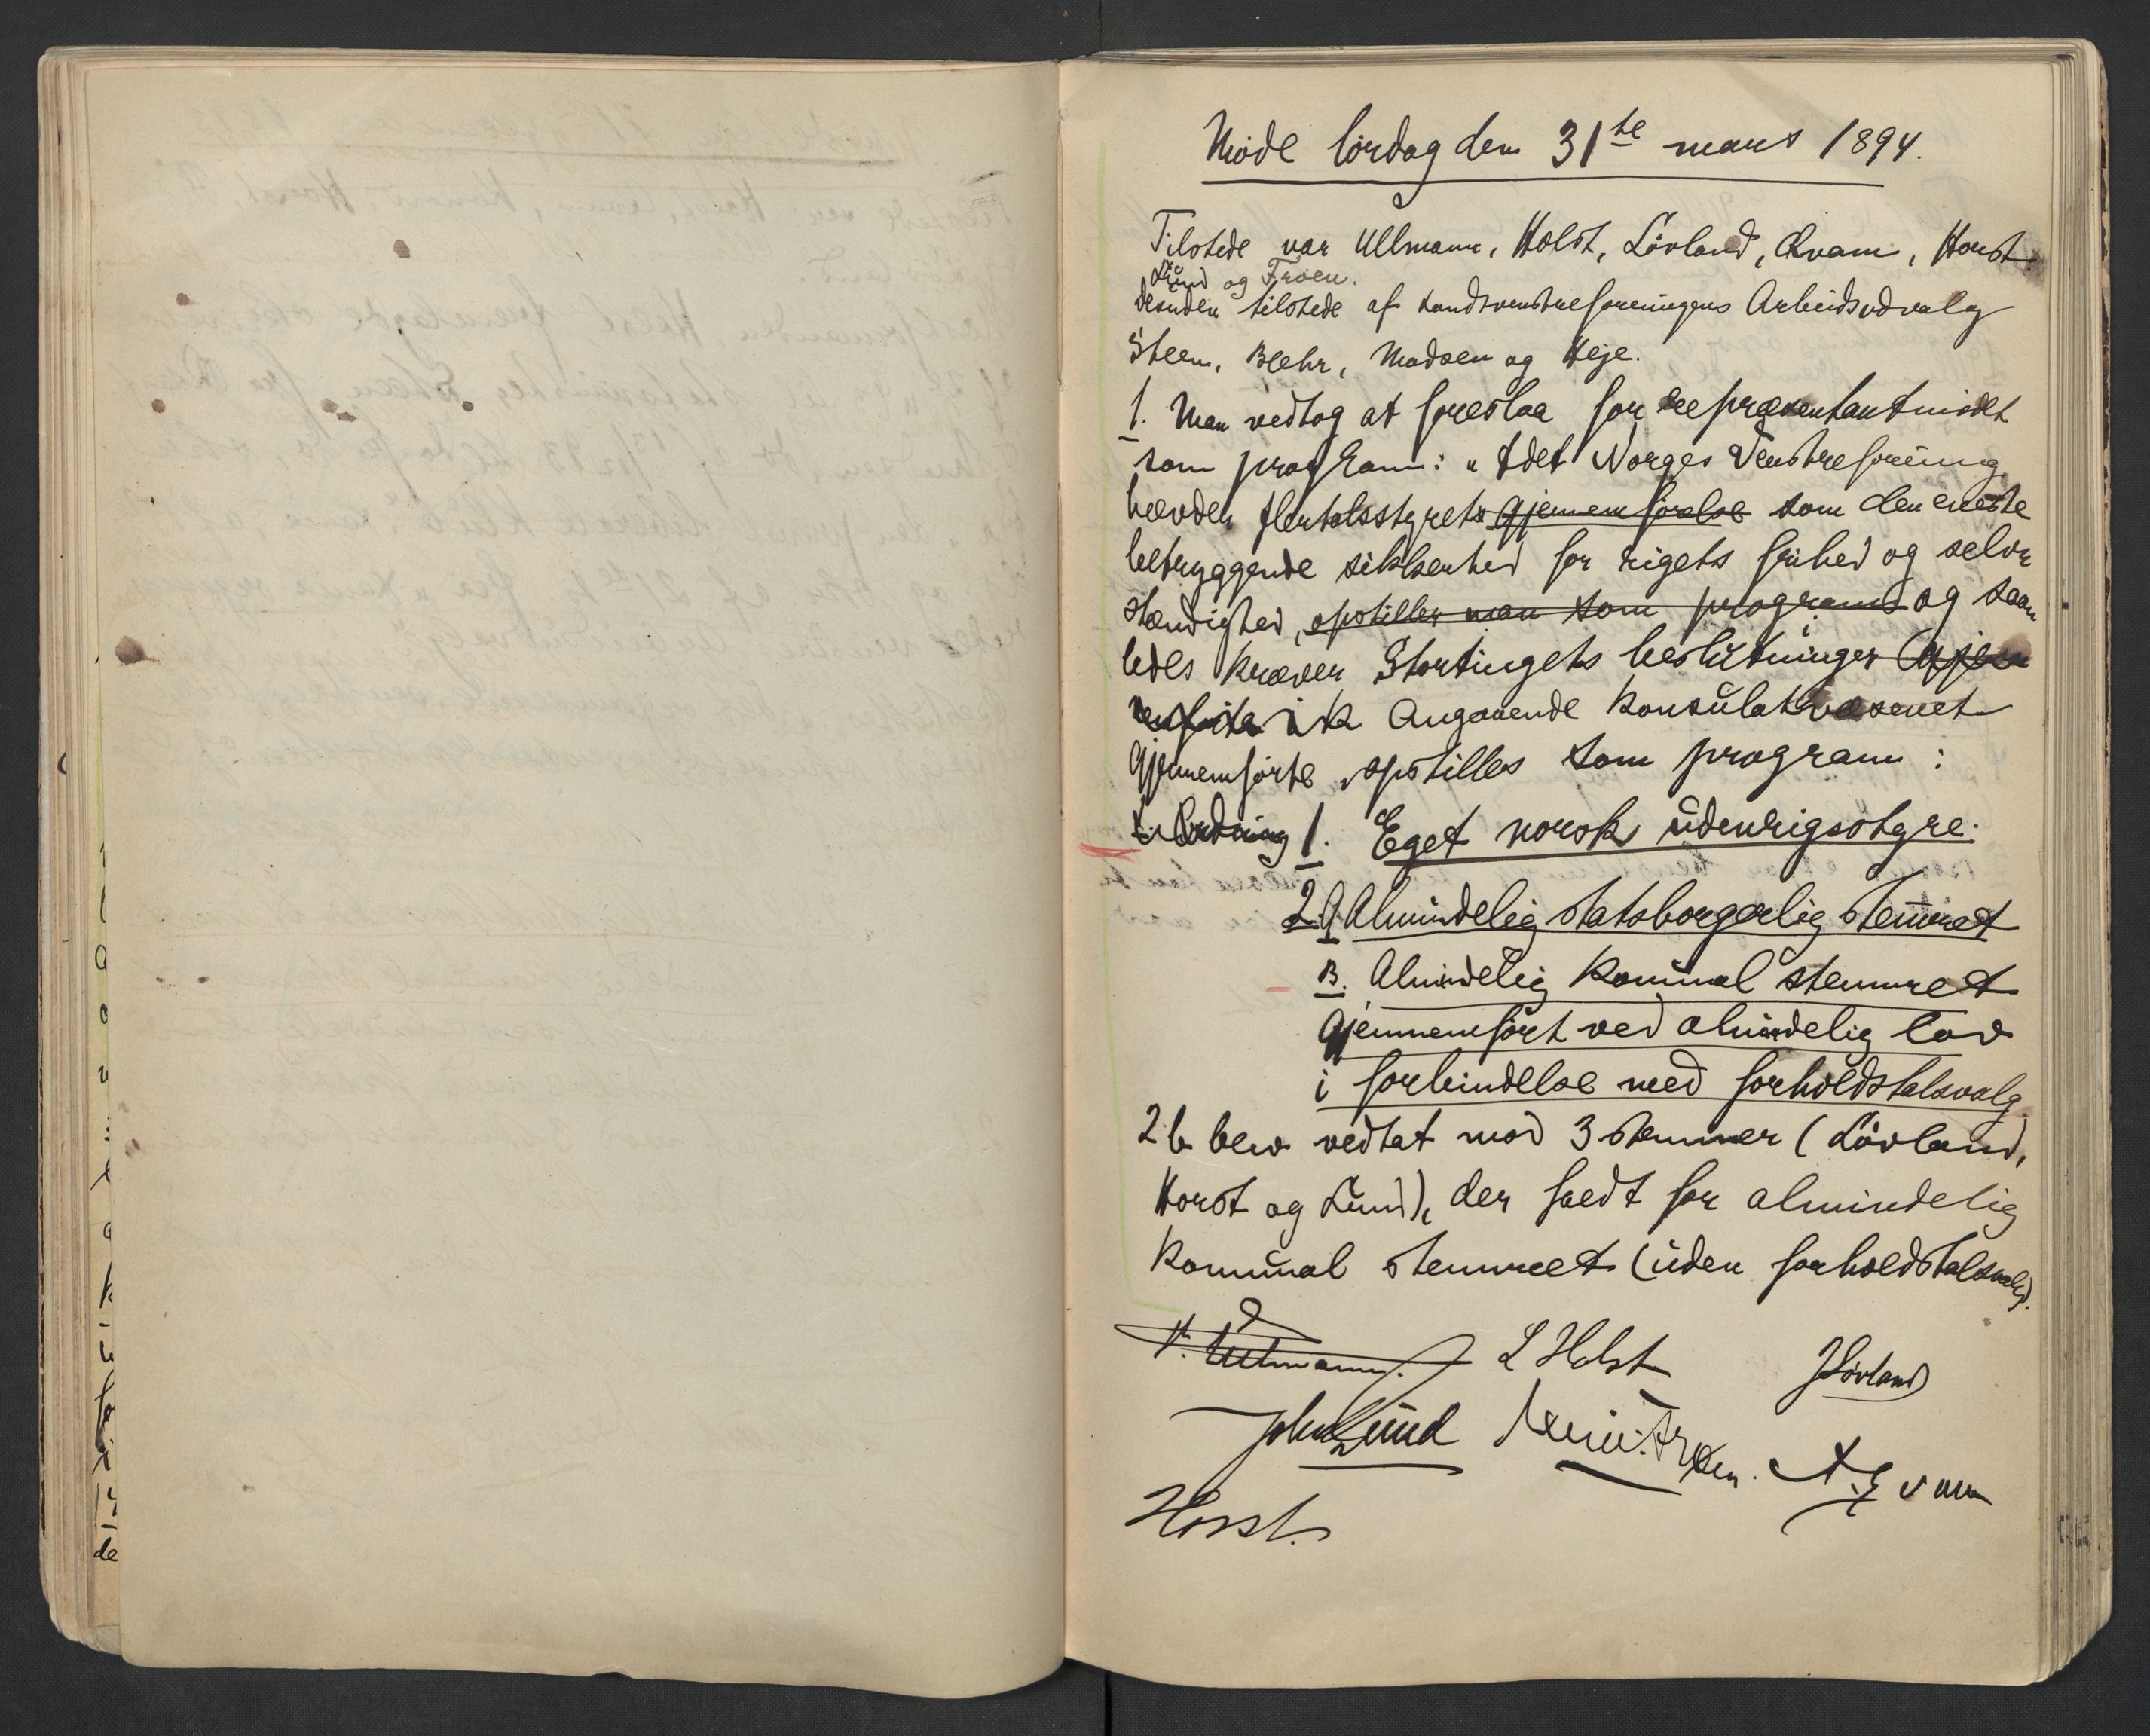 Møde lördag den 31te mars 1894.
Tilstede var Ullmann, Holst, Lövland, Qvam, Horst
Lund og Frøen.
desuden tilstede af Landsvenstreforeningens Arbeidsudvalg
Steen, Blehr, Madsen og Heje.
1. Man vedtog at foreslaa for repræsentantmödet
som program: "Idet Norges Venstreforening
hævder flertalsstyrets gjennemförelse som den eneste
betryggende sikkerhed for rigets frihed og selv
stændighed, opstiller man som program og saa
ledes kræver Stortingets beslutninger Gjen
Angaaende Konsulatvæsenet
gjennemførte, opstilles som program:
Ordning 1. Eget norsk udenrigsstyre.
2 A Almindelig statsborgerlig stemmeret
B. Almindelig kommunal stemmeret
Gjennemført ved almindelig lov
i forbindelse med forholdstalsvalg
2 b blev vedtat mod 3 stemmer (Lövland,
Horst og Lund), der holdt for almindelig
kommunal stemmeret (uden forholdstalsvalg).
V. Ullmann. L Holst JLövland
John Lund Frøen. A Qvam
Horst.
de